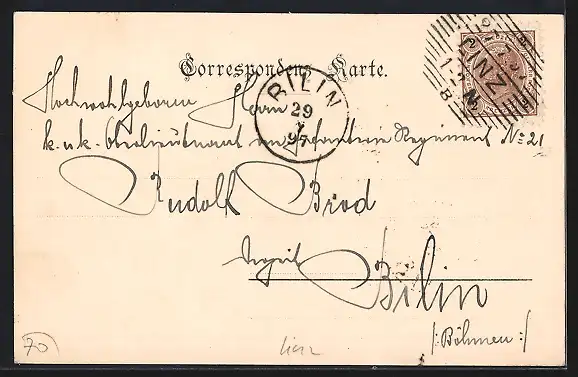 Correspondenz-Karte.
LINZ
BILIN
29
97
Hochwohlgeboren Herrn
k. u. k. Oberlieutenant im Infanterie Regiment No 21
Rudolf Brod
Bilin
/:Böhmen:/
70
Linz